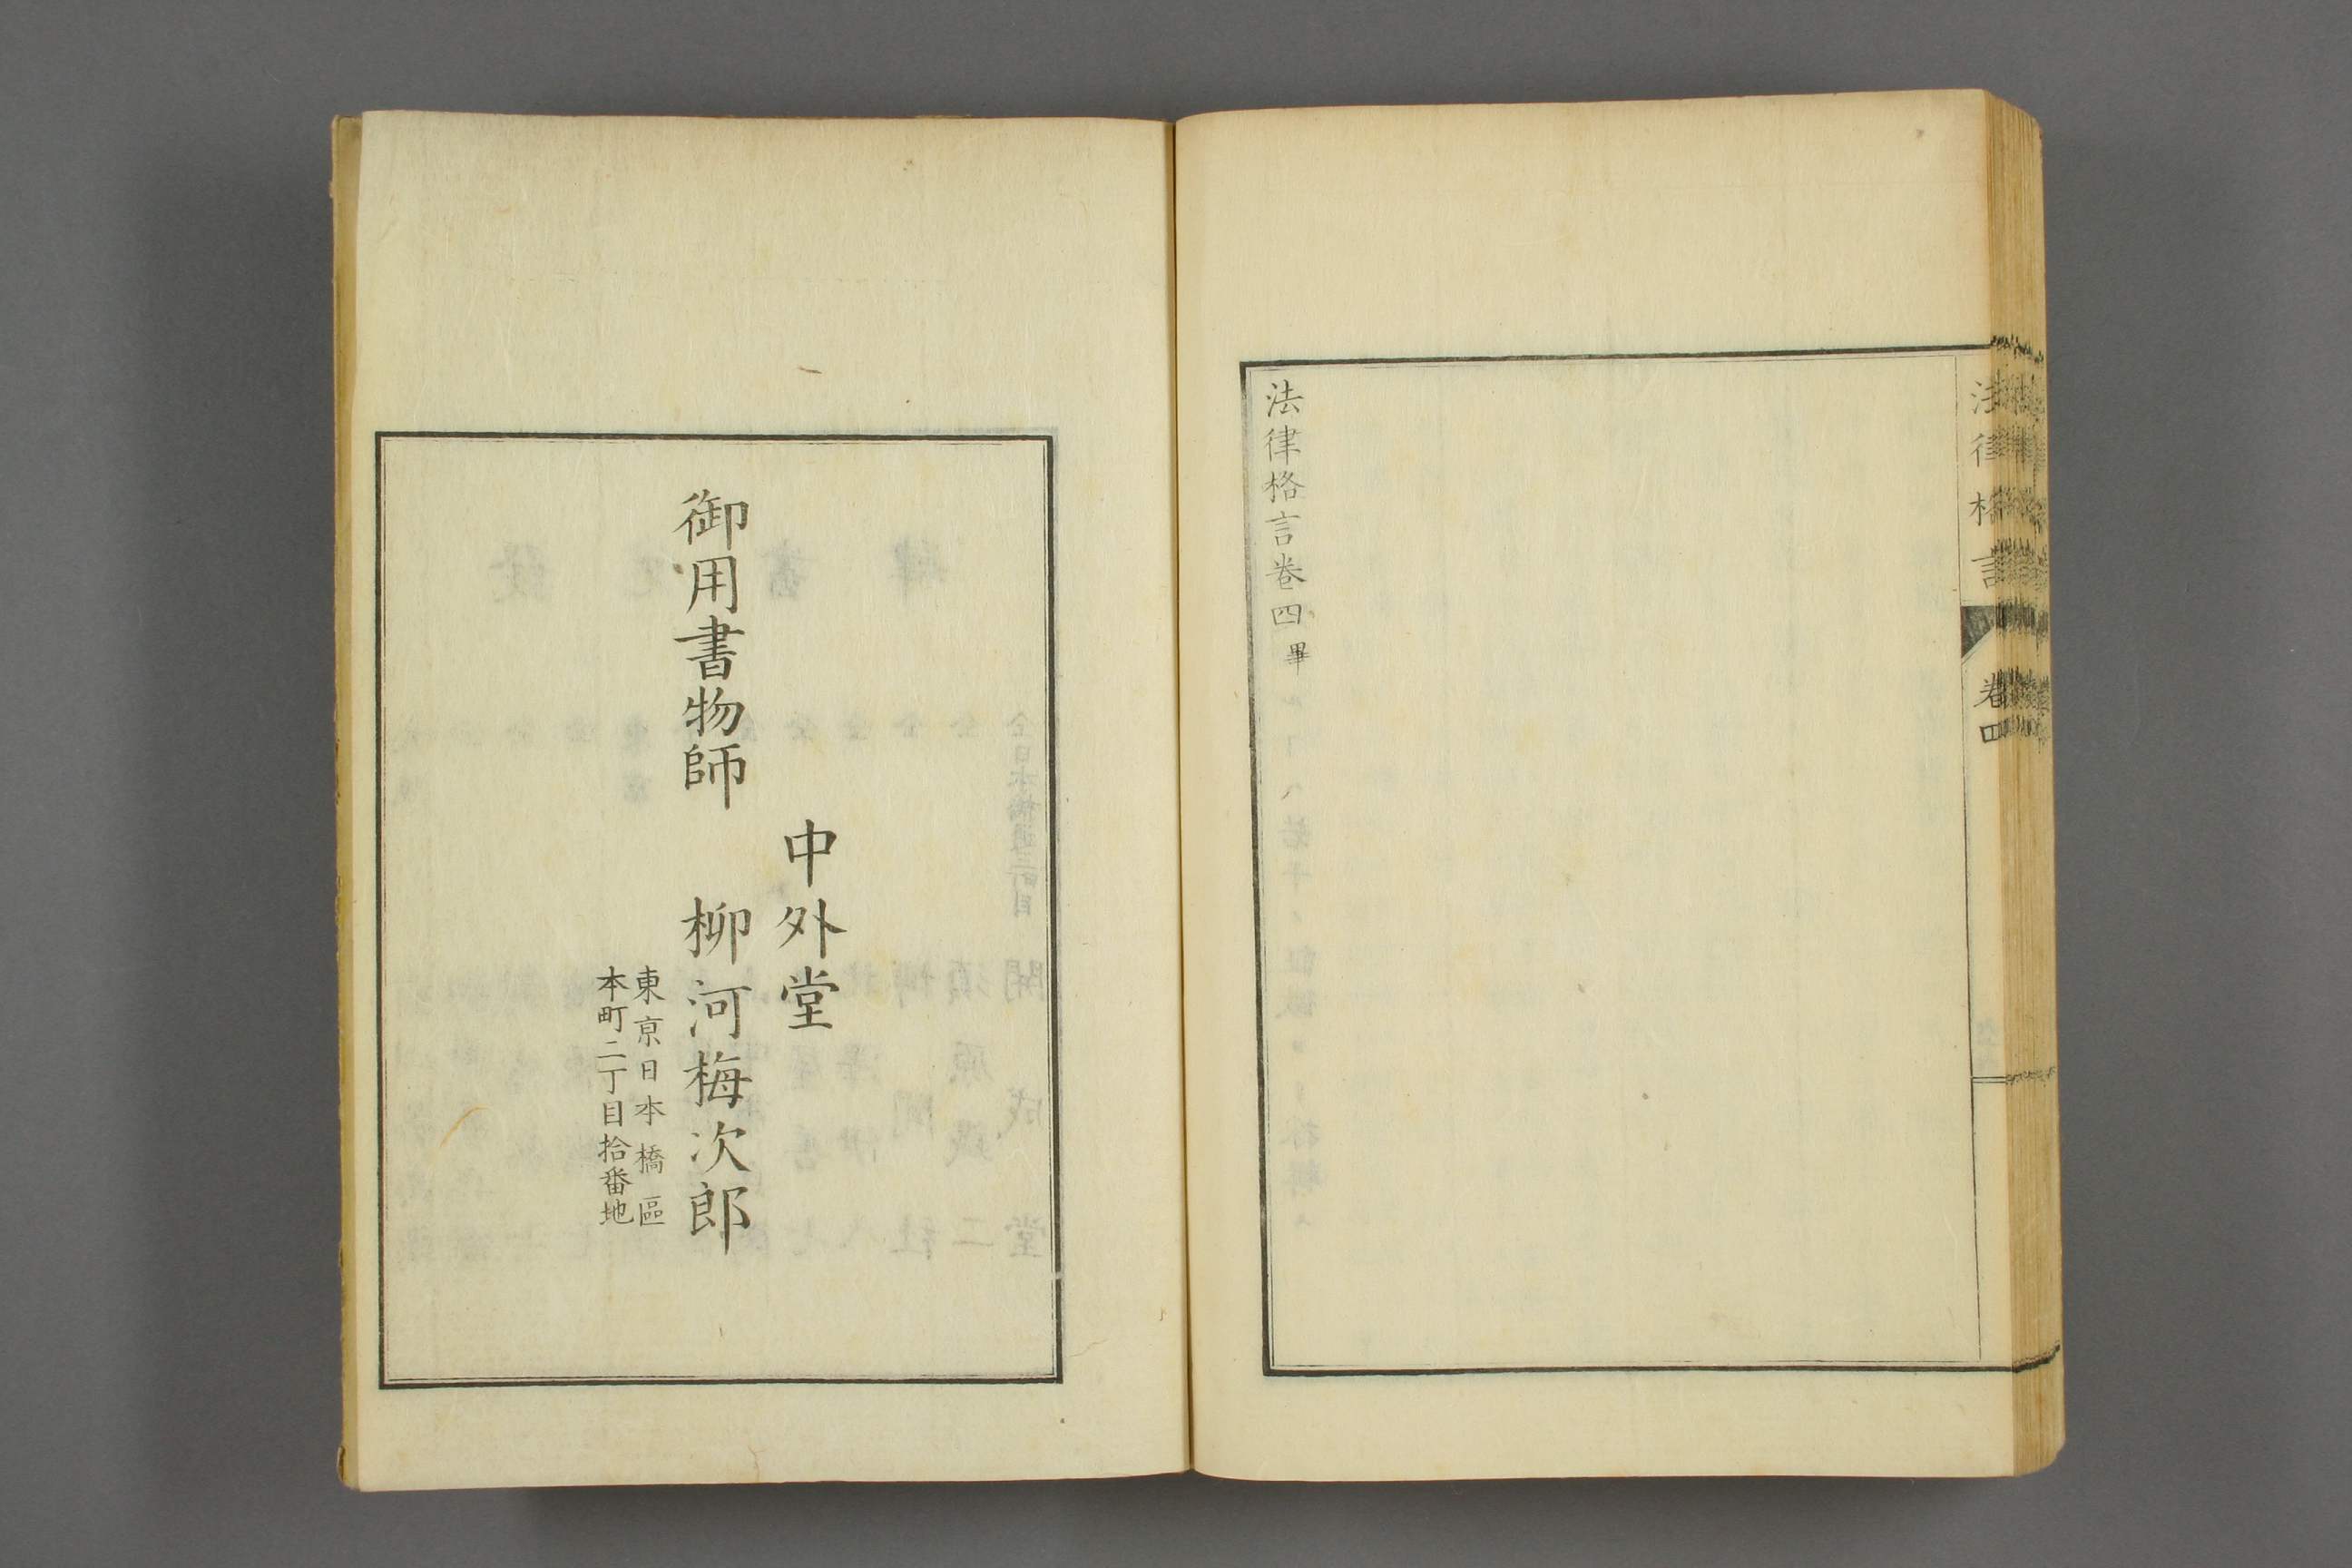 法律格言
卷四
法律格言卷四畢
中外堂
御用書物師 柳河梅次郎
東京日本橋區
本町二丁目拾番地